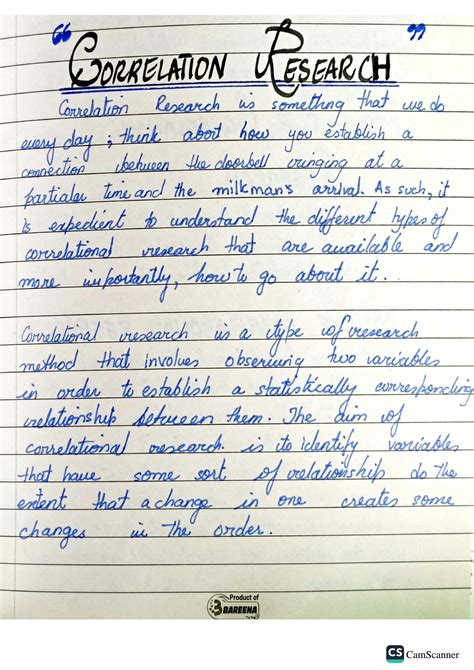 “ CORRELATION RESEARCH ”
Correlation Research is something that we do
every day ; think about how you establish a
connection between the doorbell ringing at a
particular time and the milkman's arrival. As such, it
is expedient to understand the different types of
correlational research that are available and
more importantly, how to go about it..
Correlational research is a type of research
method that involves observing two variables
in order to establish a statistically corresponding
relationship between them. The aim of
correlational research is to identify variables
that have some sort of relationship do the
extent that a change in one creates some
changes in the order.
Product of
BAREENA
CS CamScanner